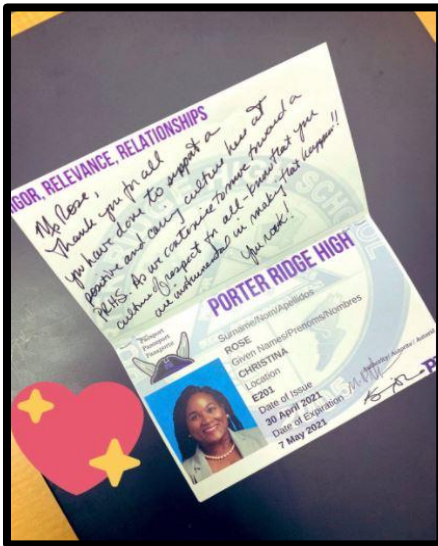 IGOR, RELEVANCE, RELATIONSHIPS
Ms Rose,
Thank you for all
you have done to support a
positive and caring culture here at
PRHS. As we continue to move toward a
culture of respect for all - know that you
are instrumental in making that happen!!
You rock!
PORTER RIDGE HIGH
Passport
Passeport
Pasaporte
Surname/Nom/Apellidos
ROSE
Given Names/Prenoms/Nombres
CHRISTINA
Location
E201
Date of Issue
30 April 2021
Date of Expiration
7 May 2021